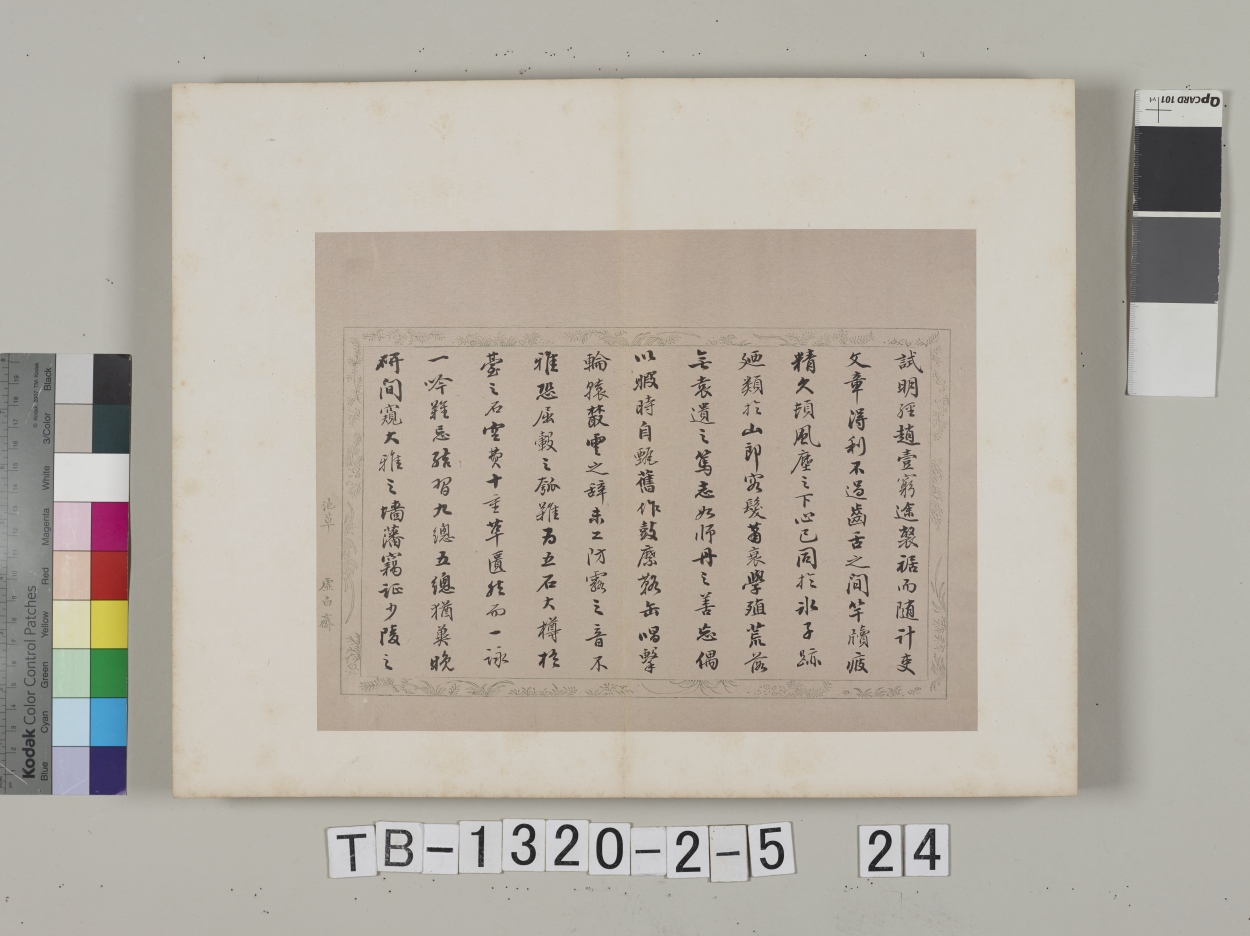 試明經趙壹窮途褧裾而随計吏
文章得利不過齒舌之間竿牘疲
精久頓風塵之下心已同於冰子跡
廼類於山郎容髮衰學殖荒落
無袁遺之篤志如師丹之善忘偶
以暇時自甄舊作鼓缶唱擊
輪轅叢雲之辭未工防露之音不
雅恐屈轂之瓠難為五石大樽於
臺之石空費十重革匱然而一詠
一吟難忘結習九總五總猶冀晚
研間窺大雅之墻藩竊証少陵之
池草 虛白齋
Kodak Color Control Patches
© Kodak, 2007 TM: Kodak
Blue Cyan Green Yellow Red Magenta White 3/Color Black
QpCARD 101 v4
TB-1320-2-5 24